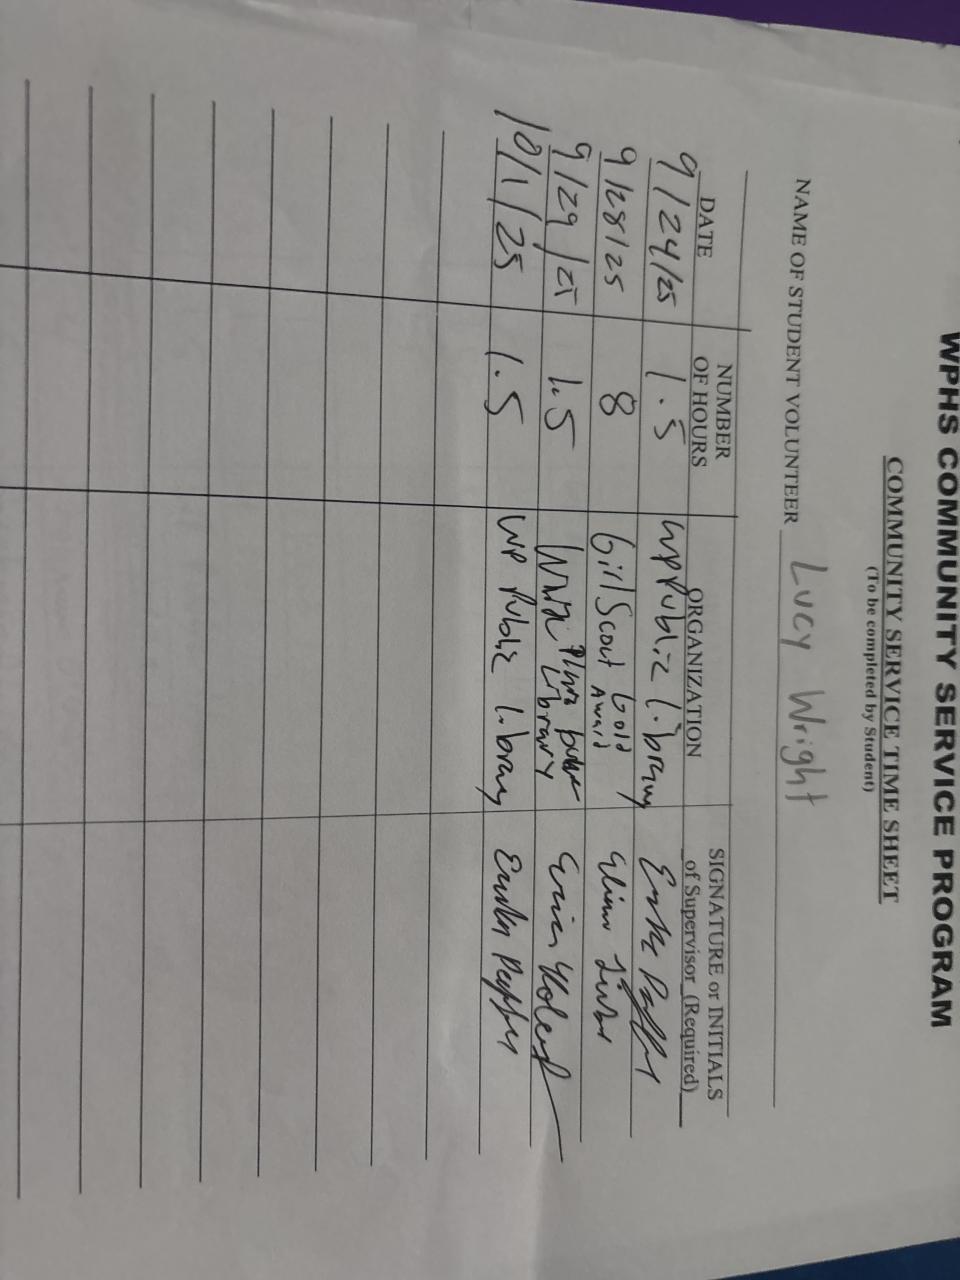 WPHS COMMUNITY SERVICE PROGRAM
COMMUNITY SERVICE TIME SHEET
(To be completed by Student)
NAME OF STUDENT VOLUNTEER Lucy Wright
DATE NUMBER OF HOURS ORGANIZATION SIGNATURE or INITIALS of Supervisor (Required)
9/24/25 1.5 WP Public Library
9/28/25 8 Girl Scout Gold Award
9/29/25 1.5 White Plains public Library
10/1/25 1.5 WP Public Library